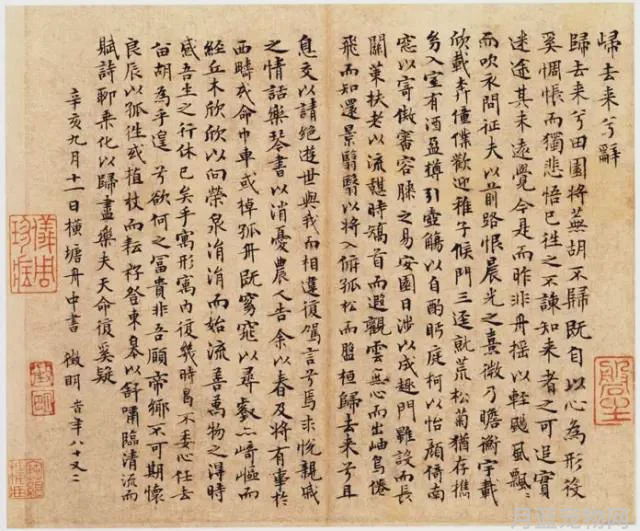 歸去来兮辭
歸去来兮田園將蕪胡不歸既自以心為形役
奚惆悵而獨悲悟已往之不諫知来者之可追實
迷途其未遠覺今是而昨非舟摇以輕颺風飄〻
而吹衣問征夫以前路恨晨光之熹微乃瞻衡宇載
欣載奔僮僕歡迎稚子候門三逕就荒松菊猶存携
幼入室有酒盈樽引壺觴以自酌眄庭柯以怡顏倚南
窓以寄傲審容膝之易安園日涉以成趣門雖設而長
關策扶老以流憩時矯首而遐觀雲無心而出岫鳥倦
飛而知還景翳翳以將入撫孤松而盤桓歸去来兮且
息交以請絶遊世與我而相違復駕言兮焉求悅親戚
之情話樂琴書以消憂農人告余以春及將有事於
西疇或命巾車或棹孤舟既窈窕以尋壑亦崎嶇而
經丘木欣欣以向榮泉涓涓而始流善萬物之得時
感吾生之行休已矣乎寓形寓內復幾時曷不委心任去
留胡為乎遑兮欲何之富貴非吾願帝鄉不可期懷
良辰以孤徃或植杖而耘耔登東皋以舒嘯臨清流而
賦詩聊乘化以歸盡樂夫天命復奚疑
辛亥九月十一日橫塘舟中書 徵明 時年八十又二
儀周珍藏